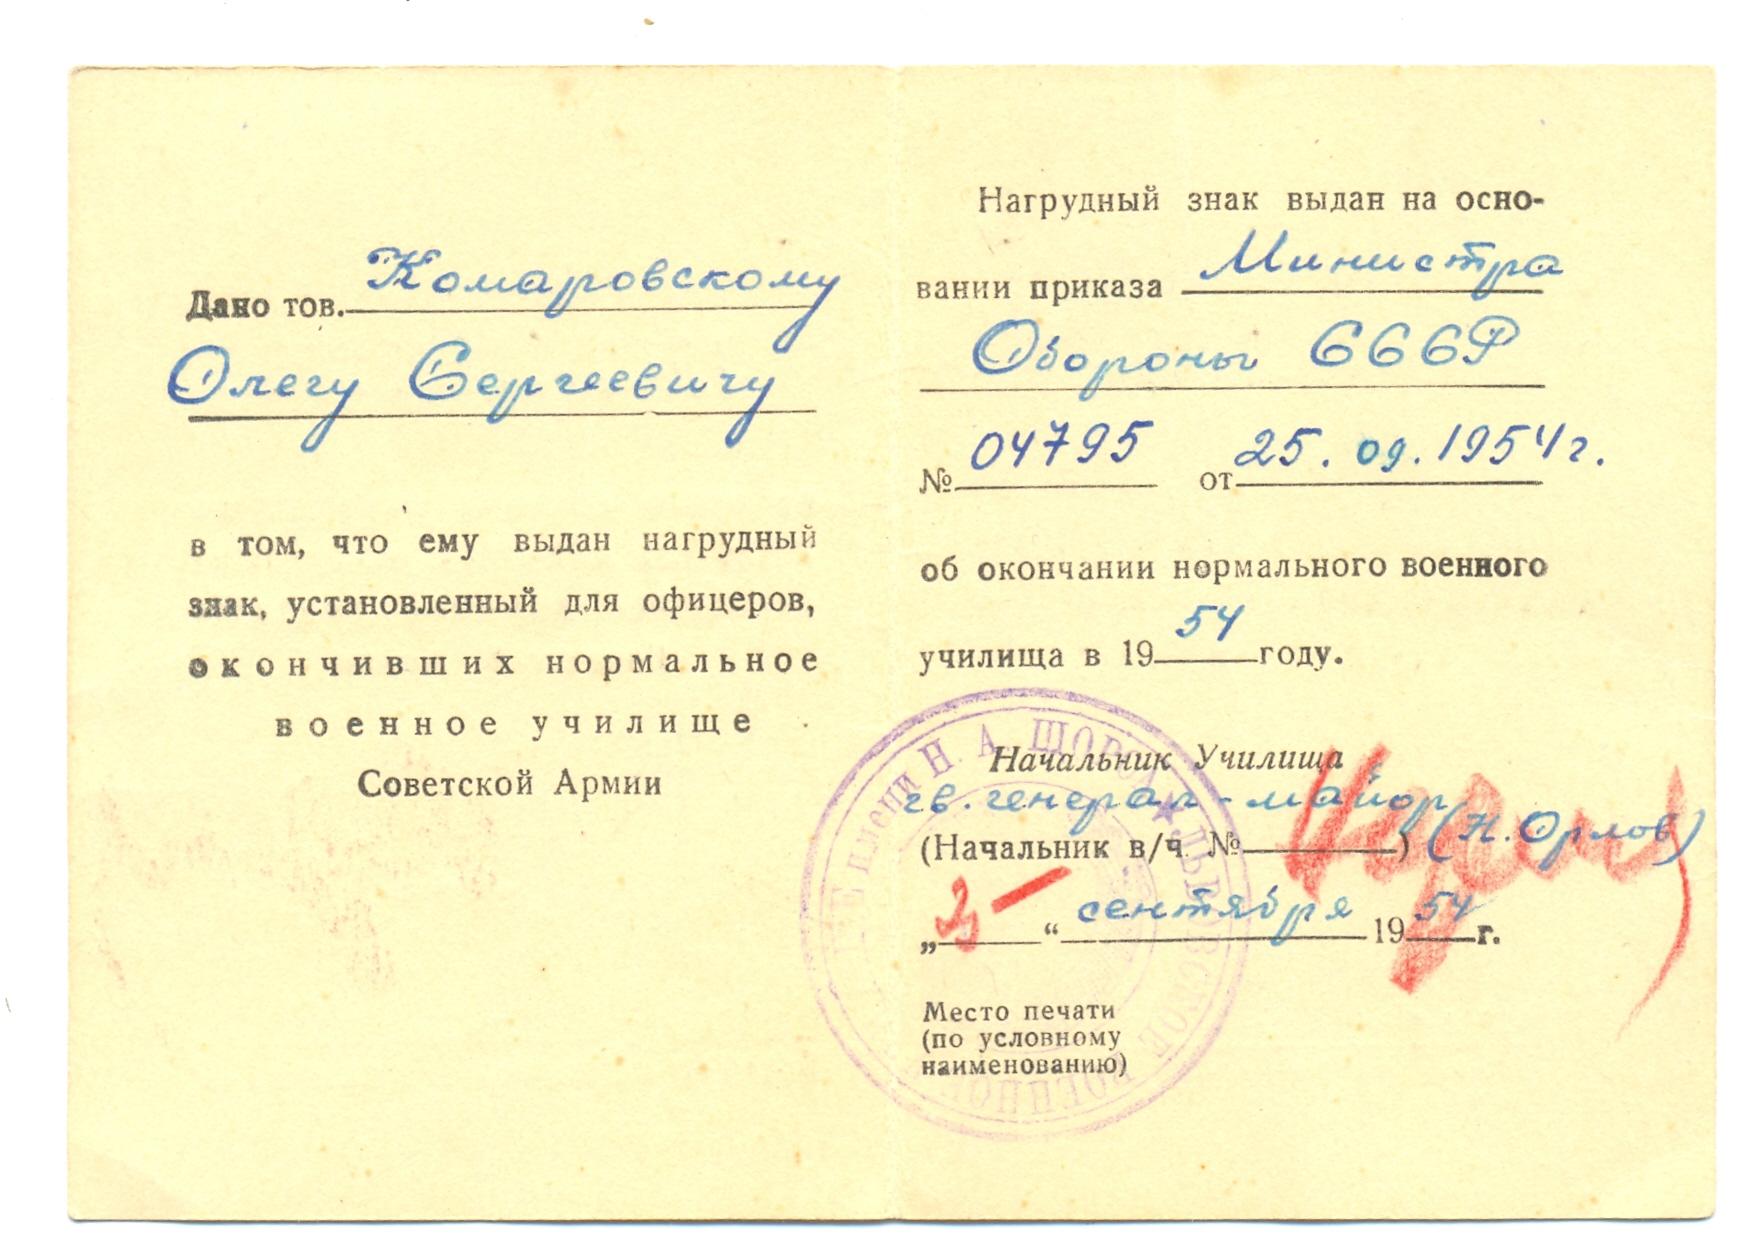 Дано тов. Комаровскому
Олегу Сергеевичу
в том, что ему выдан нагрудный
знак, установленный для офицеров,
окончивших нормальное
военное училище
Советской Армии
Нагрудный знак выдан на осно-
вании приказа Министра
Обороны СССР
№ 04795 от 25.09.1954г.
об окончании нормального военного
училища в 1954 году.
Начальник Училища
гв. генерал-майор
(Начальник в/ч № ) (Н. Орлов)
„ “ сентября 1954 г.
Место печати
(по условному
наименованию)
имени Н. А. ЩОРСА ★ ЛЬВОВСКОЕ ВОЕННОЕ